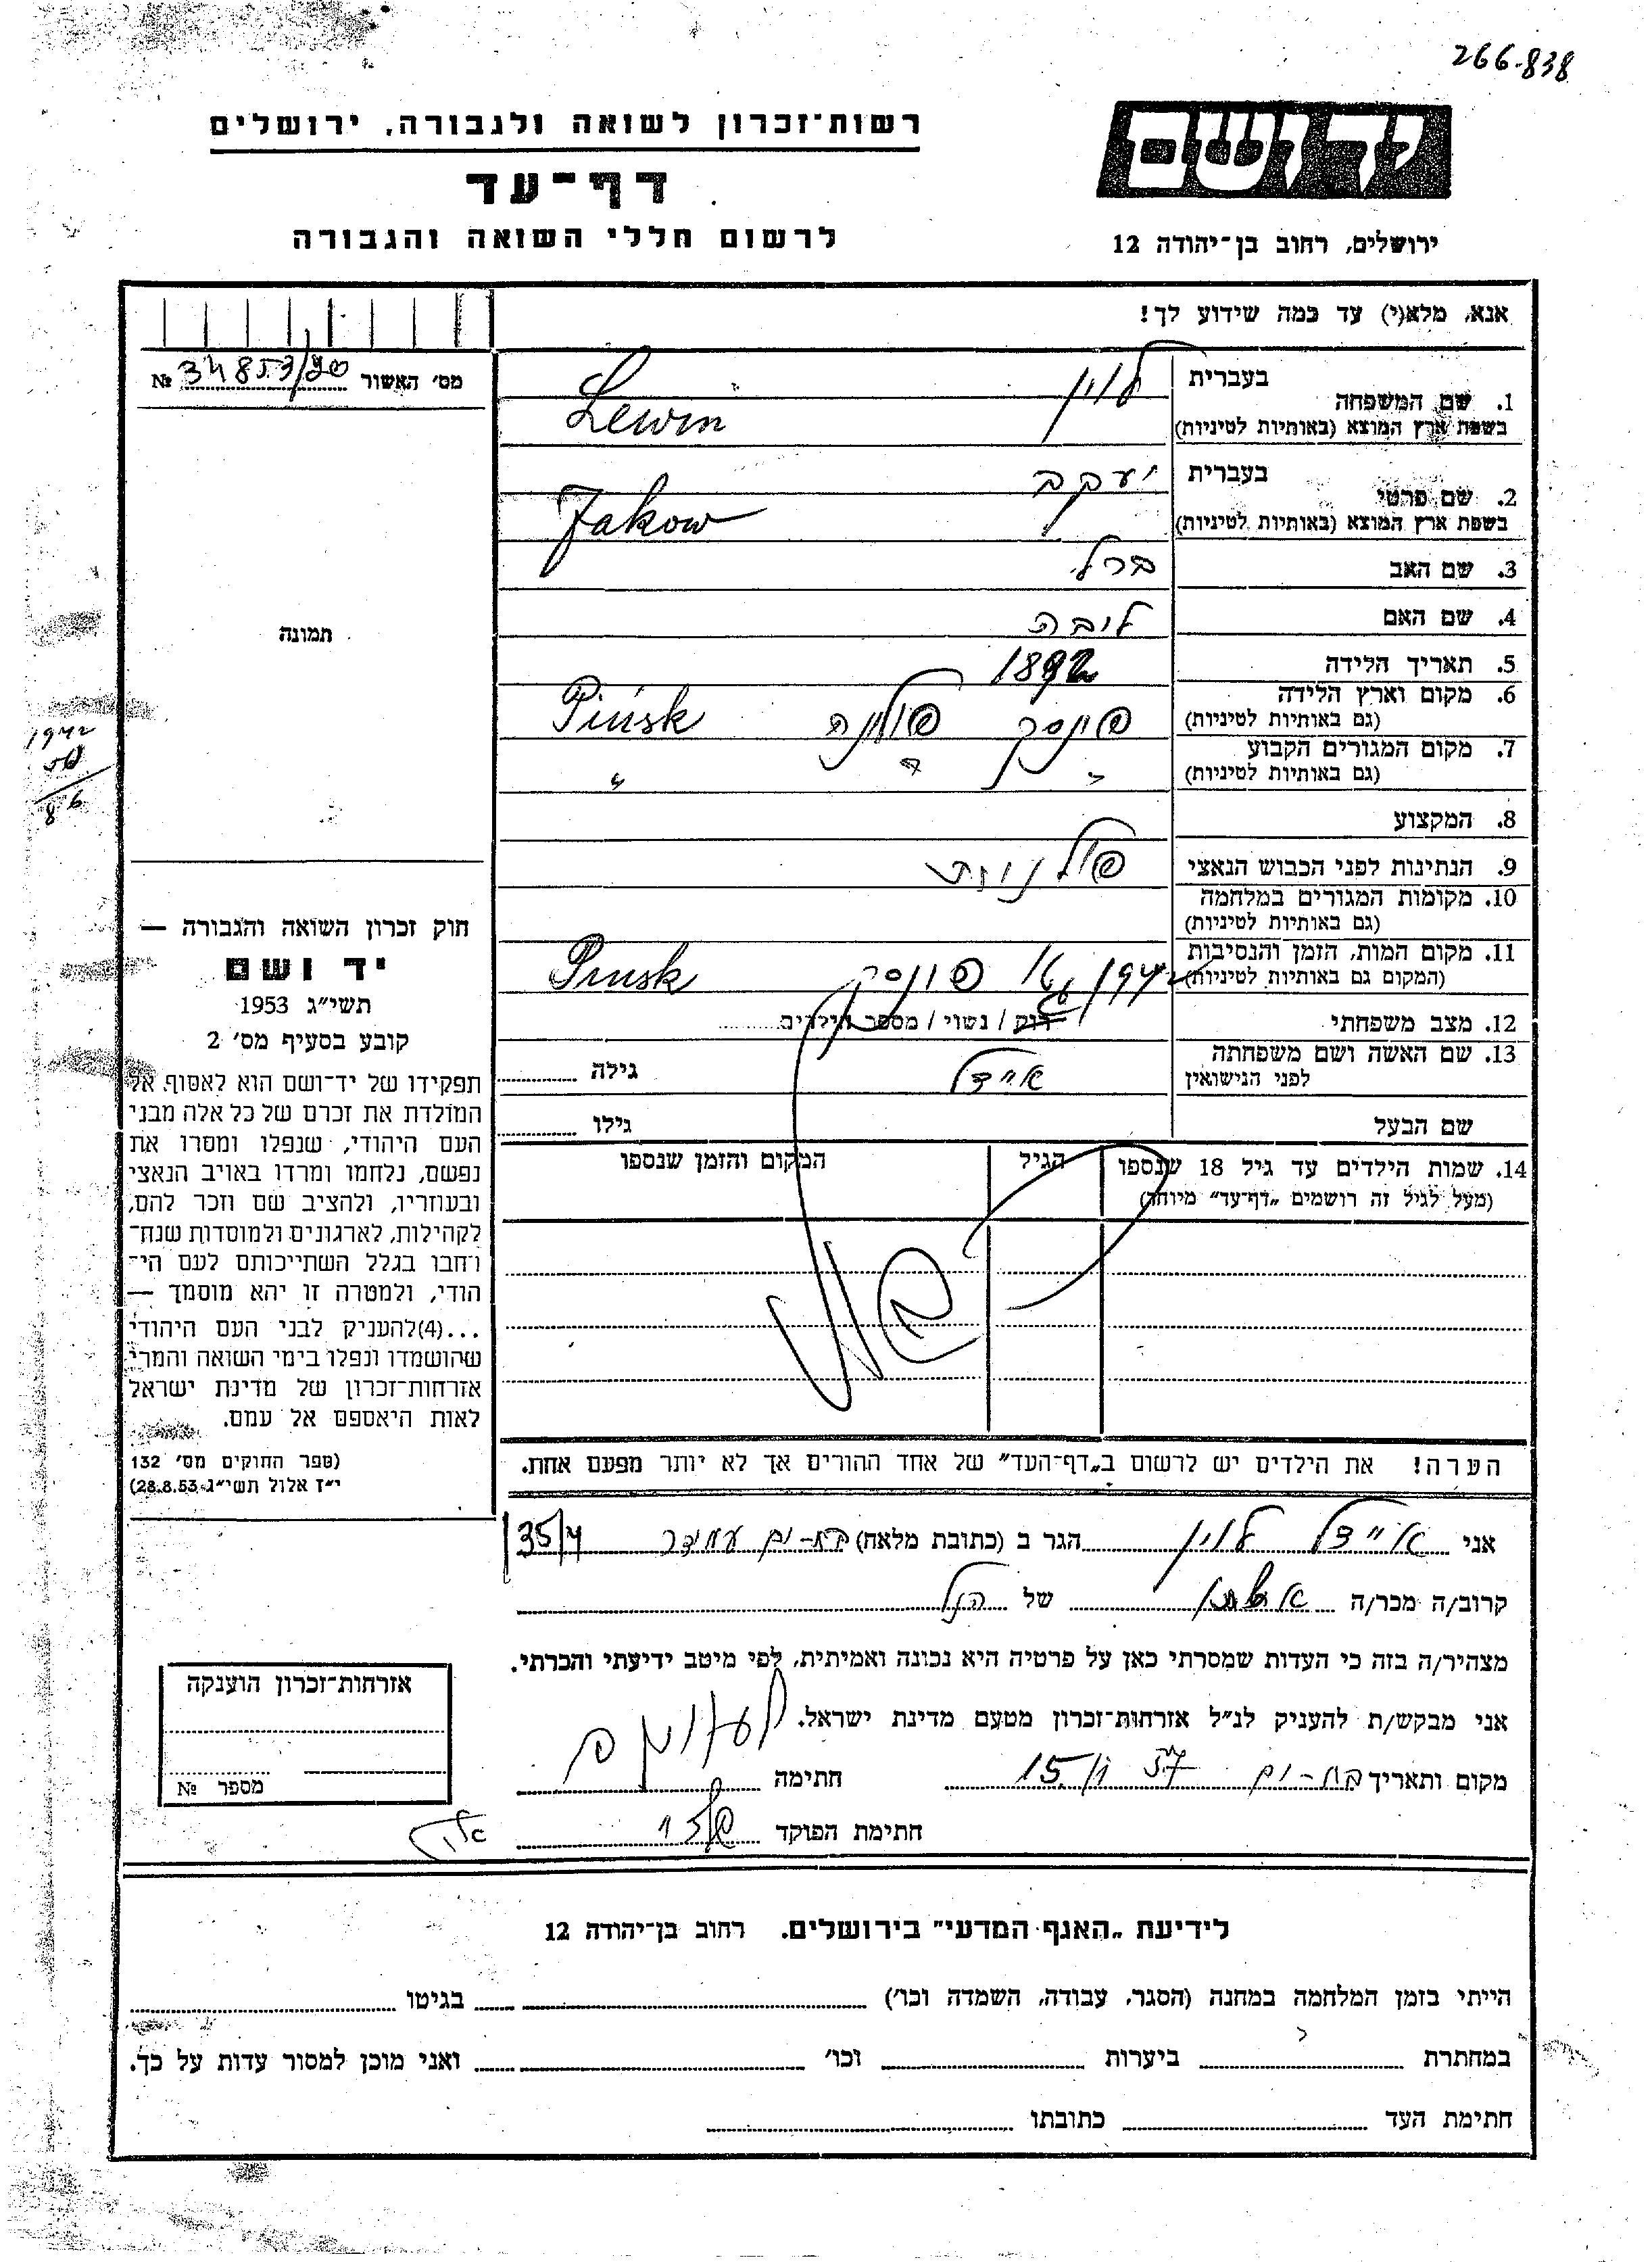 266-838
רשות־זכרון לשואה ולגבורה, ירושלים
יד ושם
דף־עד
לרשום חללי השואה והגבורה
ירושלים, רחוב בן־יהודה 12
אנא, מלא(י) עד כמה שידוע לך!
מס׳ האשור № 34853/20
בעברית לוין
1. שם המשפחה
בשפת ארץ המוצא (באותיות לטיניות) Lewin
בעברית יעקב
2. שם פרטי
בשפת ארץ המוצא (באותיות לטיניות) Jakow
3. שם האב ברל
4. שם האם ליבה
תמונה
5. תאריך הלידה 1892
6. מקום וארץ הלידה
(גם באותיות לטיניות) פינסק פולניה Pinsk
1942
7. מקום המגורים הקבוע
(גם באותיות לטיניות) " " "
8. המקצוע
9. הנתינות לפני הכבוש הנאצי פולנית
10. מקומות המגורים במלחמה
(גם באותיות לטיניות)
11. מקום המות, הזמן והנסיבות
(המקום גם באותיות לטיניות) 1942 פינסק Pinsk
12. מצב משפחתי רוק / נשוי / מספר הילדים
13. שם האשה ושם משפחתה אײדל גילה
לפני הנישואין
שם הבעל גילו
14. שמות הילדים עד גיל 18 שנספו הגיל המקום והזמן שנספו
(מעל לגיל זה רושמים „דף־עד" מיוחד)
חוק זכרון השואה והגבורה —
יד ושם
תשי״ג 1953
קובע בסעיף מס׳ 2
תפקידו של יד־ושם הוא לאסוף אל
המולדת את זכרם של כל אלה מבני
העם היהודי, שנפלו ומסרו את
נפשם, נלחמו ומרדו באויב הנאצי
ובעוזריו, ולהציב שם וזכר להם,
לקהילות, לארגונים ולמוסדות שנח־
רבו בגלל השתייכותם לעם הי־
הודי, ולמטרה זו יהא מוסמך —
...(4)להעניק לבני העם היהודי
שהושמדו ונפלו בימי השואה והמרי
אזרחות־זכרון של מדינת ישראל
לאות היאספם אל עמם.
(ספר החוקים מס׳ 132
י״ז אלול תשי״ג 28.8.53)
הערה! את הילדים יש לרשום ב„דף־העד" של אחד ההורים אך לא יותר מפעם אחת.
אני אײדל לוין הגר ב (כתובת מלאה) בת-ים עמידר 35/4
קרוב/ה מכר/ה של הנ״ל
מצהיר/ה בזה כי העדות שמסרתי כאן על פרטיה היא נכונה ואמיתית, לפי מיטב ידיעתי והכרתי.
אני מבקש/ת להעניק לנ״ל אזרחות־זכרון מטעם מדינת ישראל.
מקום ותאריך בת-ים 15 חתימה
חתימת הפוקד
אזרחות־זכרון הוענקה
מספר №
לידיעת „האגף המדעי" בירושלים. רחוב בן־יהודה 12
הייתי בזמן המלחמה במחנה (הסגר, עבודה, השמדה וכו׳) בגיטו
במחתרת ביערות וכו׳ ואני מוכן למסור עדות על כך.
חתימת העד כתובתו